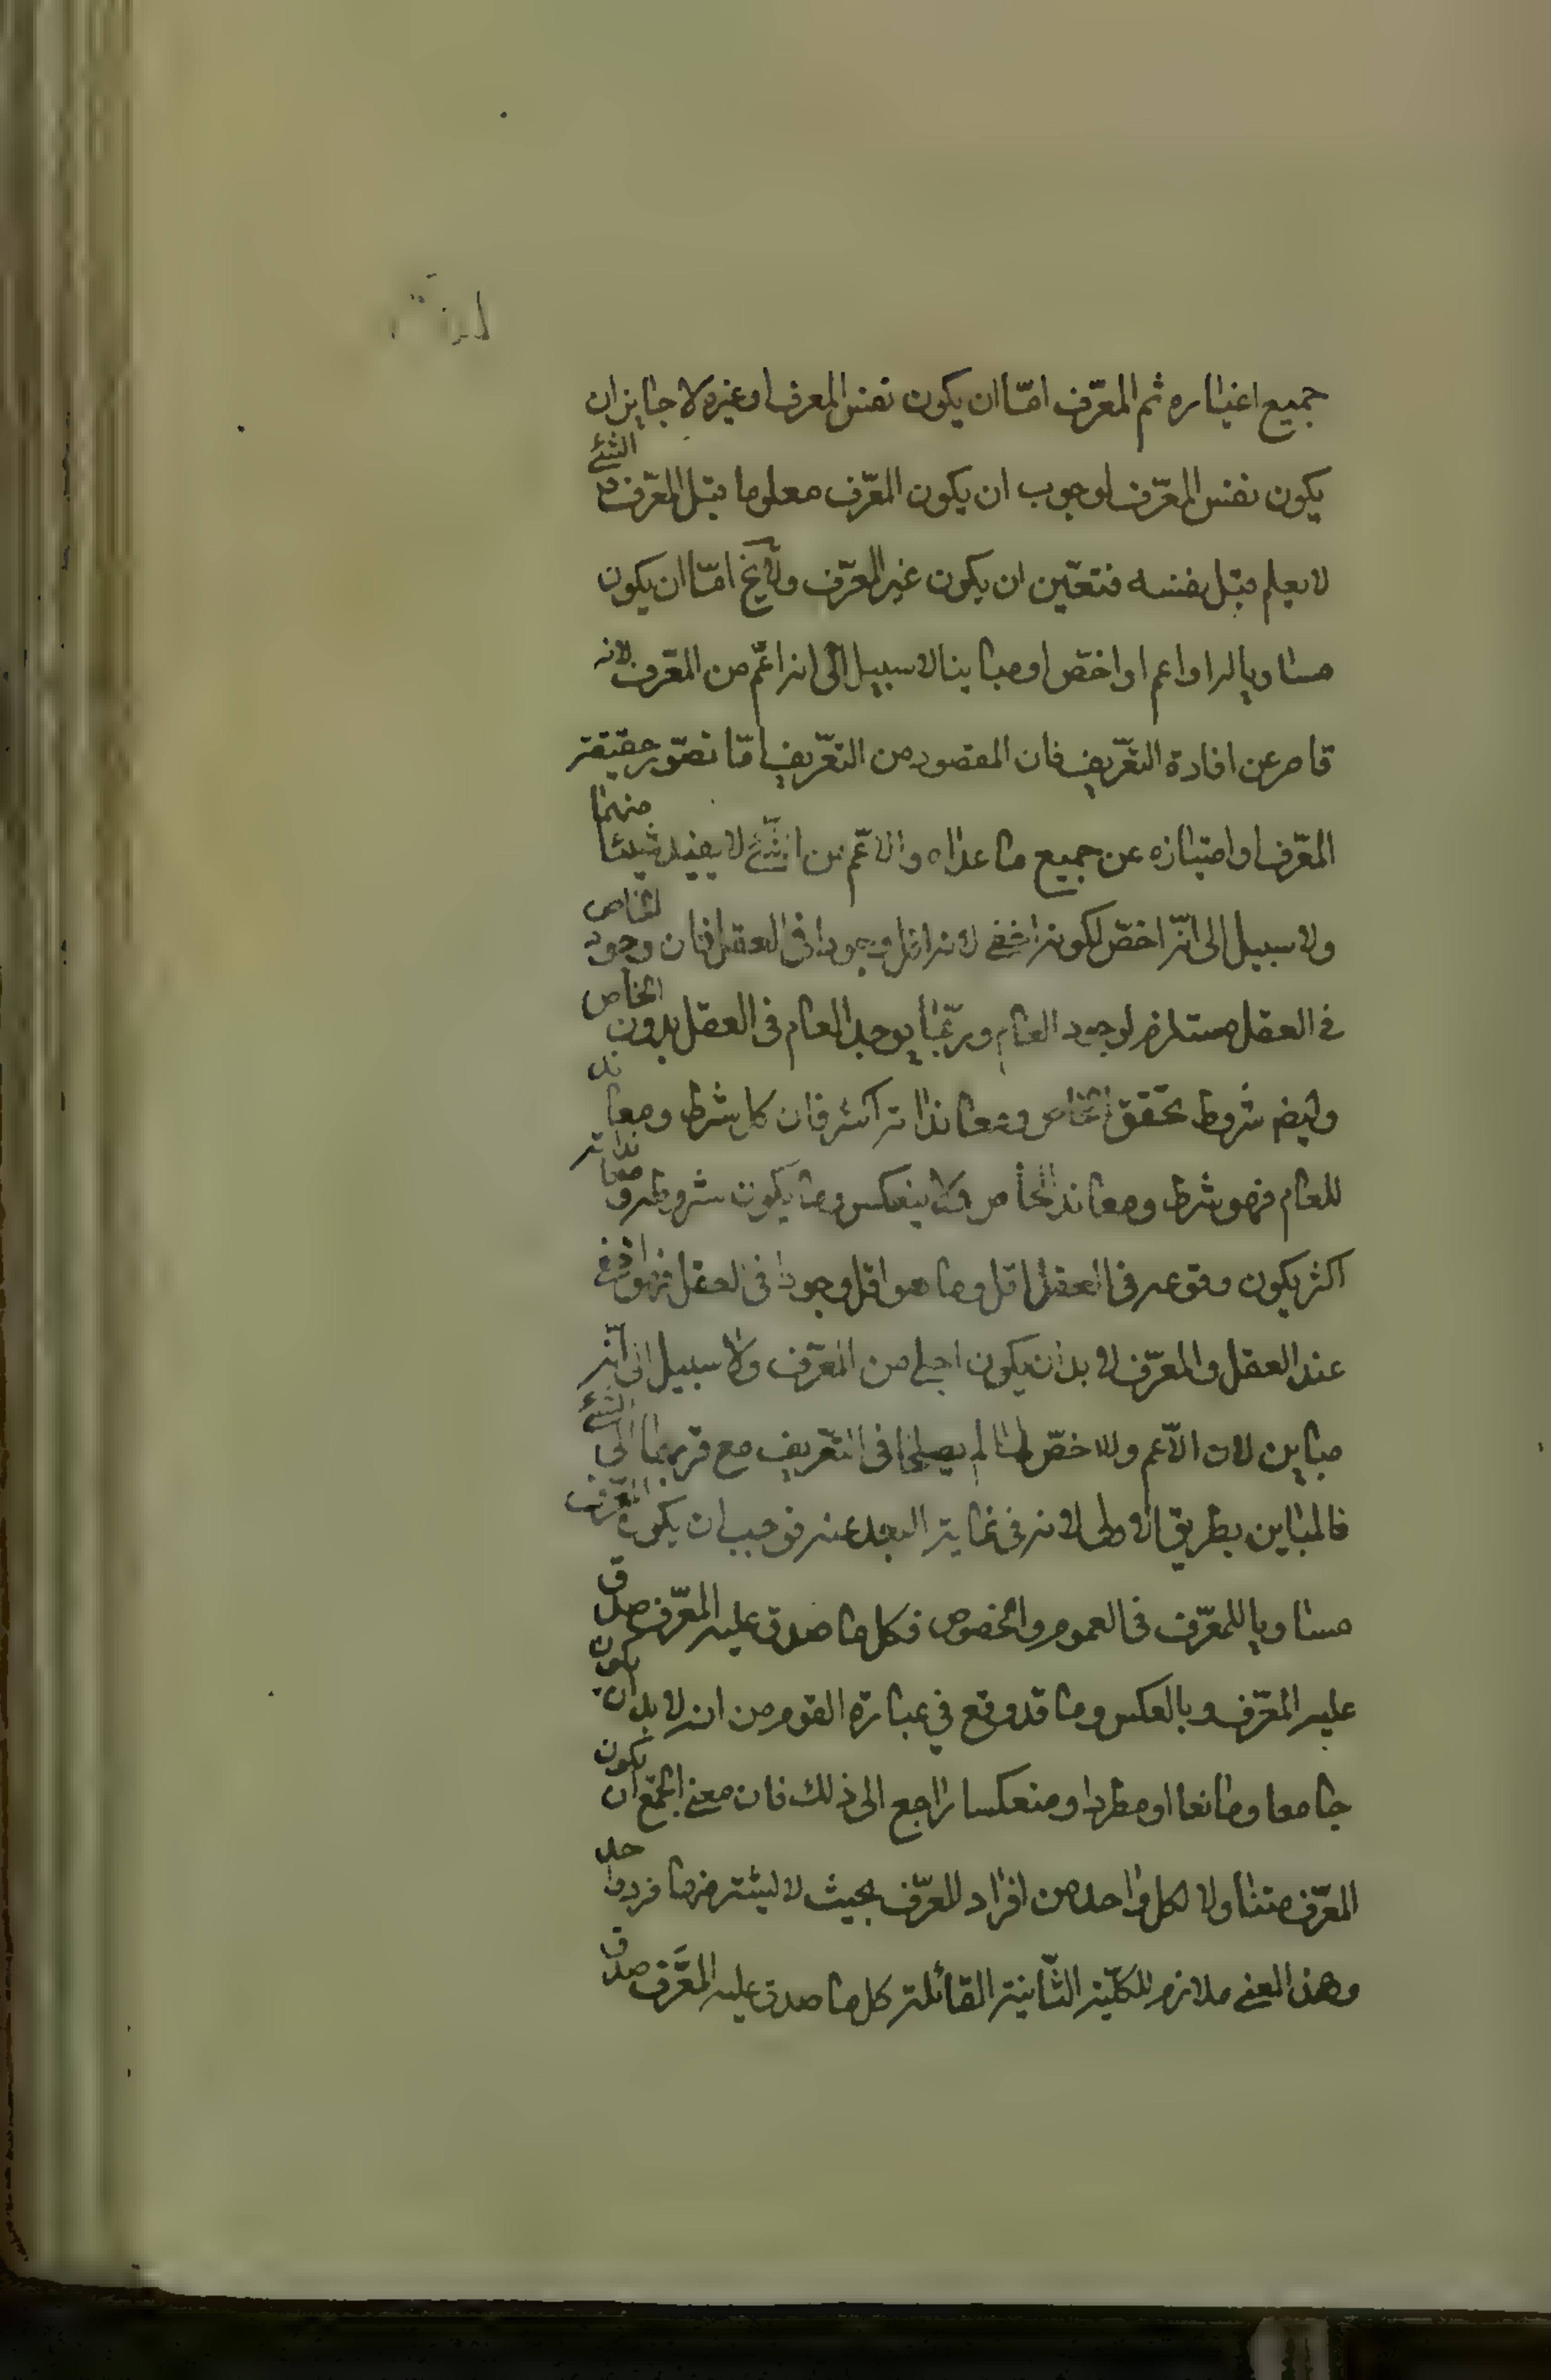 جميع اغياره ثم المعرّف امّا ان يكون نفس المعرف او غيره لا جايز ان
يكون نفس المعرّف لوجوب ان يكون المعرّف معلوما قبل المعرّف و الشئ
لا يعلم قبل نفسه فتعّين ان يكون غير المعرّف ولا يخ امّا ان يكون
مساويا له او اعم او اخصّ او مباينا لا سبيل الى انه اعّم من المعّرف لانه
قاصر عن افادة التعّريف فان المقصود من التعّريف امّا تصوّر حقيقة
المعّرف او امتيازه عن جميع ما عداه والاعّم من الشئ لا يفيد شيئا منهما
ولا سبيل الى انّه اخصّ لكونه اخفى لانه اقل وجودا فى العقل فان وجود الخاص
فى العقل مستلزم لوجود العام وربّما يوجد العام فى العقل بدون الخاص
وايضا شروط تحقق الخاص ومعانداته اكثر فان كل شرط ومعاند
للعام فهو شرط ومعاند للخاص ولا ينعكس وما يكون شروطه ومعانداته
اكثر يكون وقوعه فى العقل اقل وما هو اقل وجودا فى العقل فهو اخفى
عند العقل والمعرّف لا بد ان يكون اجلى من المعرّف ولا سبيل الى انّه
مباين لان الاّعم والاخصّ لما لم يصلحا فى التعّريف مع قربهما الى الشئ
فالمباين بطريق الاولى لانه فى غاية البعد عنه فوجب ان يكون المعّرف
مساويا للمعّرف فى العموم والخصوص فكل ما صدق عليه المعّرف صدق
عليه المعّرف وبالعكس وما قد وقع في عبارة القوم من انه لا بد ان يكون
جامعا ومانعا او مطردا ومنعكسا راجع الى ذلك فان معنى الجمع ان يكون
المعّرف متناولا لكل واحد من افراد المعّرف بحيث لا يشذ منها فرد واحد
وهذا المعنى ملازم للكليّة الثّانية القائلة كل ما صدق عليه المعَّرف صدق